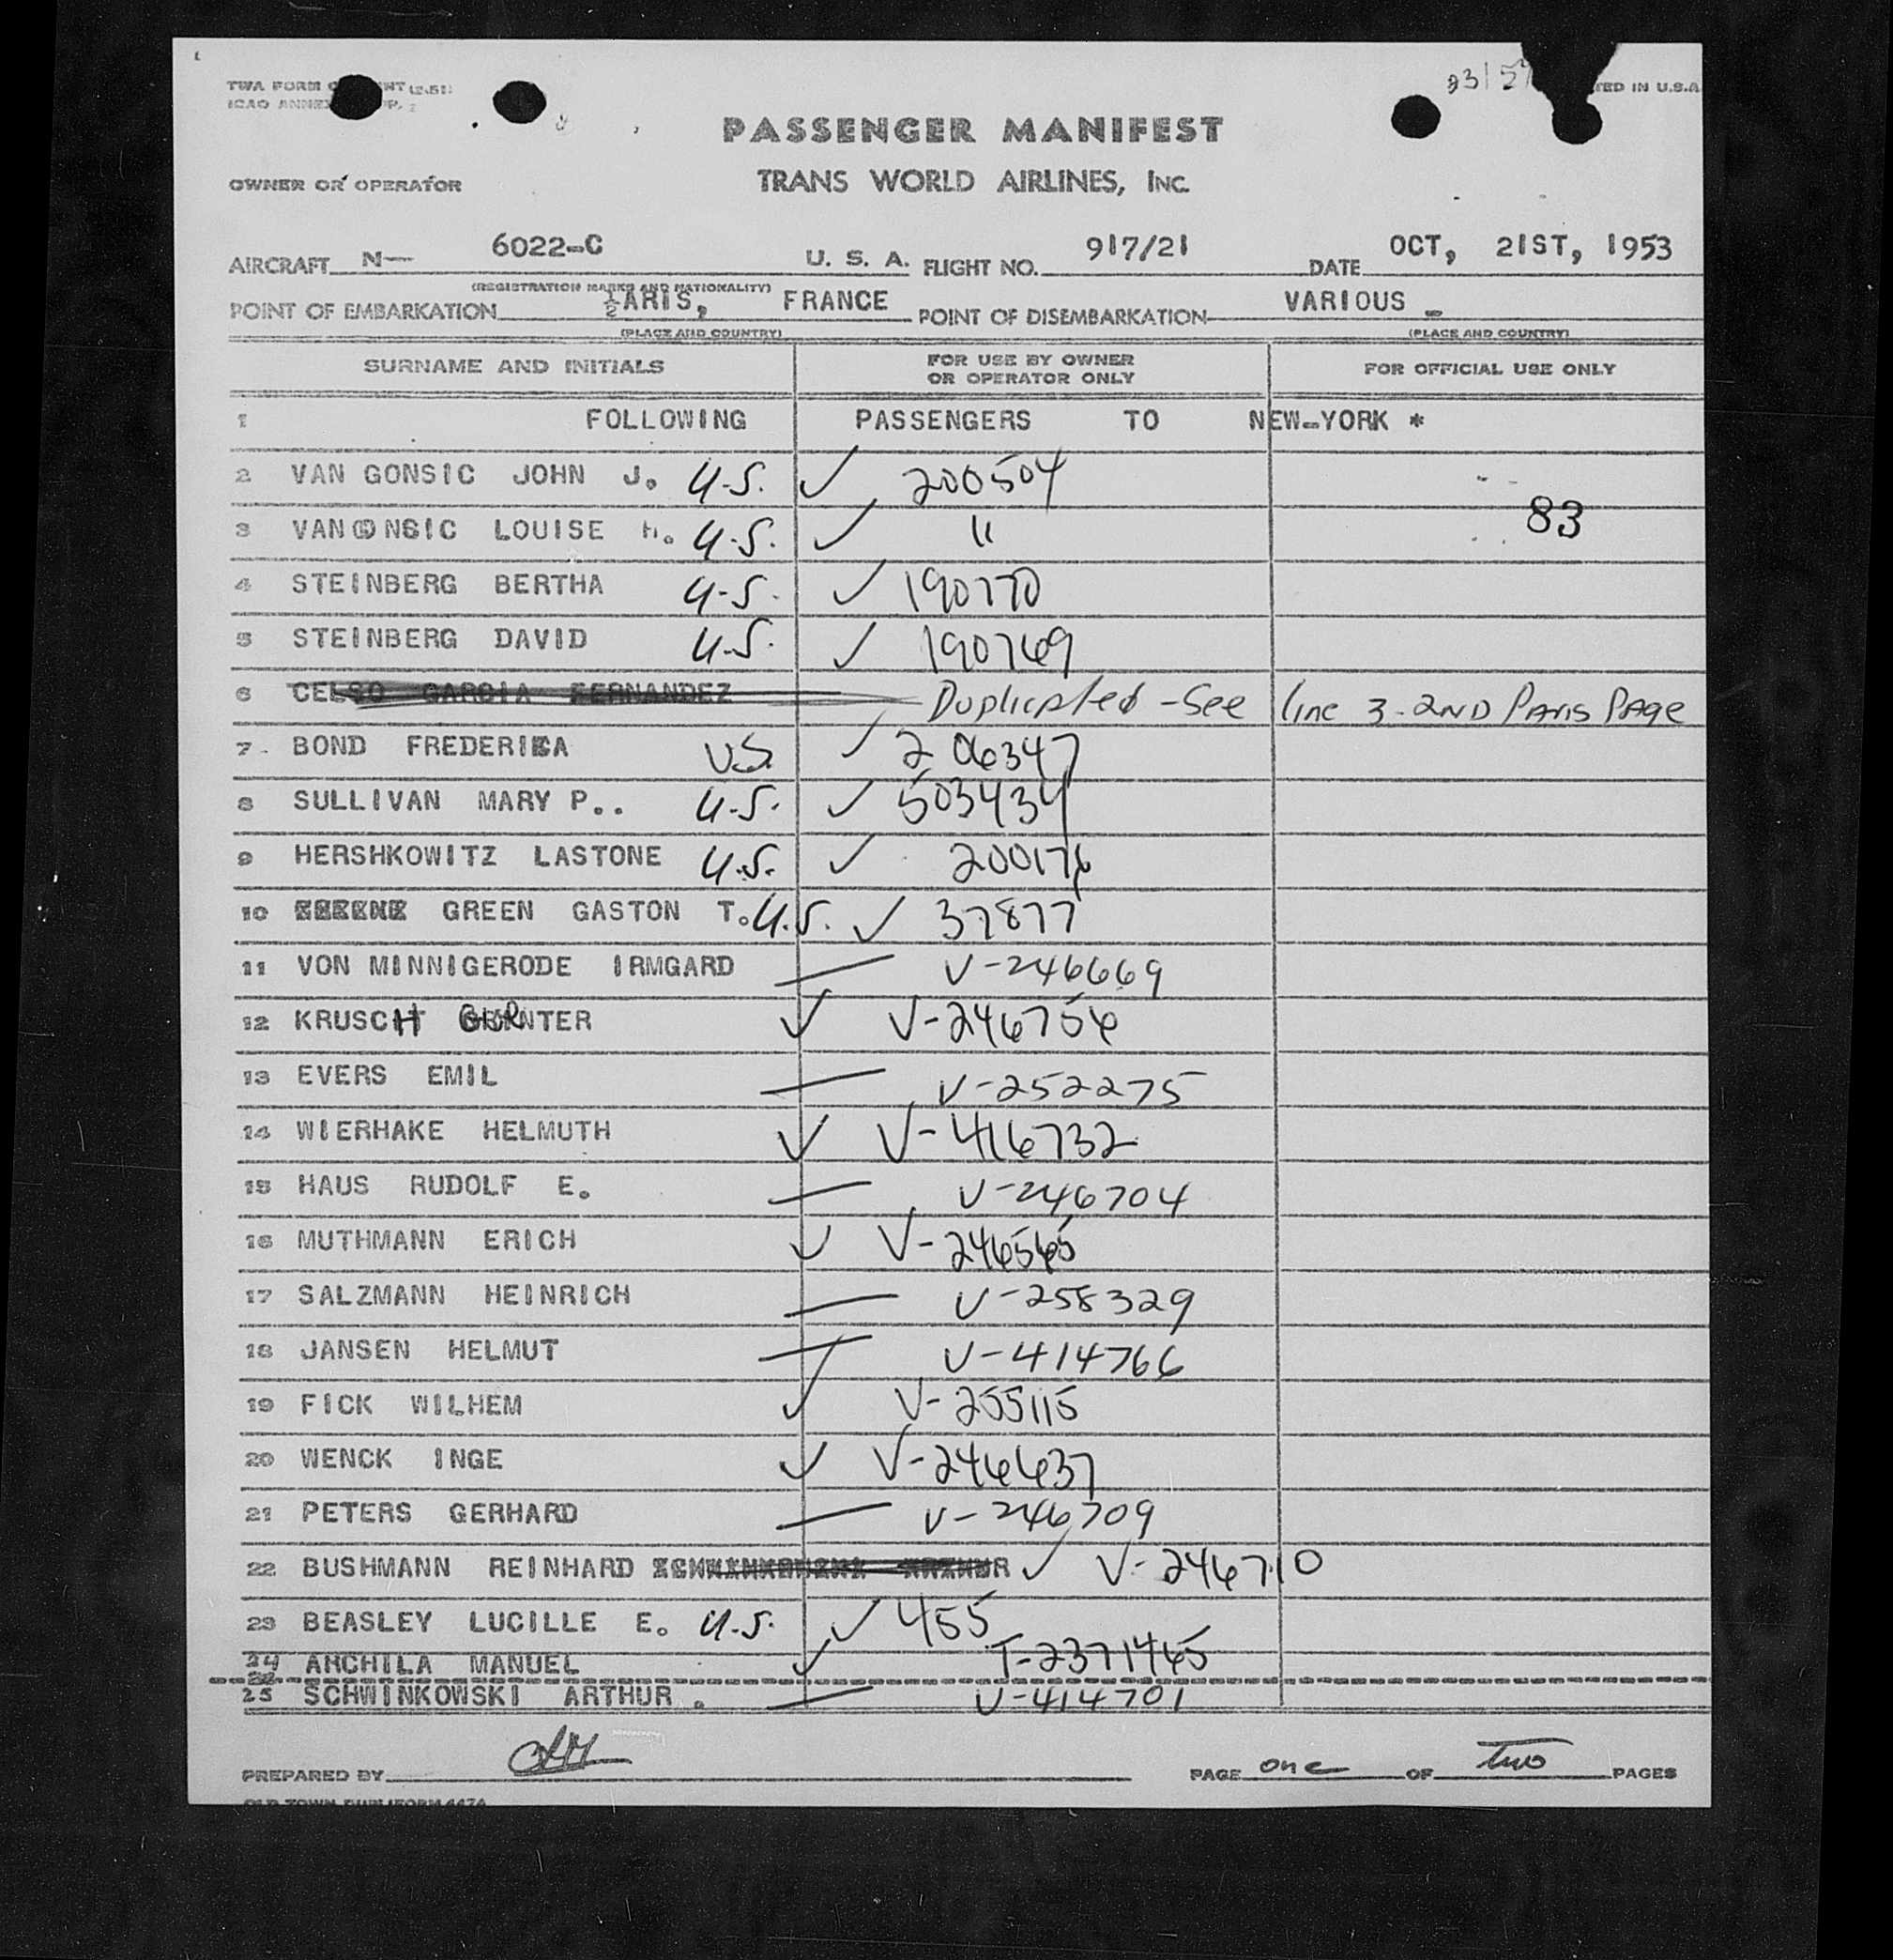 TWA FORM NT (2-51)
ICAO ANNEX
23 | 5
TED IN U.S.A.
PASSENGER MANIFEST
OWNER OR OPERATOR
TRANS WORLD AIRLINES, INC.
AIRCRAFT N— 6022-C U. S. A. FLIGHT NO. 917/21 DATE OCT, 21ST, 1953
(REGISTRATION MARKS AND NATIONALITY)
POINT OF EMBARKATION ½ARIS, FRANCE POINT OF DISEMBARKATION VARIOUS -
(PLACE AND COUNTRY) (PLACE AND COUNTRY)
SURNAME AND INITIALS FOR USE BY OWNER OR OPERATOR ONLY FOR OFFICIAL USE ONLY
1 FOLLOWING PASSENGERS TO NEW-YORK *
2 VAN GONSIC JOHN J. U.S. ✓ 200504
3 VANGONSIC LOUISE H. U.S. ✓ " 83
4 STEINBERG BERTHA U.S. ✓ 190770
5 STEINBERG DAVID U.S. ✓ 190769
6 CELSO GARCIA FERNANDEZ Duplicated - See line 3 - 2ND PARIS PAGE
7 BOND FREDERICA US ✓ 206347
8 SULLIVAN MARY P.. U.S. ✓ 503434
9 HERSHKOWITZ LASTONE U.S. ✓ 200176
10 GREEN GASTON T. U.S. ✓ 37877
11 VON MINNIGERODE IRMGARD — V-246669
12 KRUSCH GUNTER ✓ V-246756
13 EVERS EMIL — V-252275
14 WIERHAKE HELMUTH ✓ V-416732
15 HAUS RUDOLF E. — V-246704
16 MUTHMANN ERICH ✓ V-246565
17 SALZMANN HEINRICH — V-258329
18 JANSEN HELMUT — V-414766
19 FICK WILHEM ✓ V-255115
20 WENCK INGE ✓ V-246637
21 PETERS GERHARD — V-246709
22 BUSHMANN REINHARD ✓ V-246710
23 BEASLEY LUCILLE E. U.S. ✓ 455
24 ARCHILA MANUEL ✓ T-2371465
25 SCHWINKOWSKI ARTHUR . — V-414701
PREPARED BY PAGE one OF two PAGES